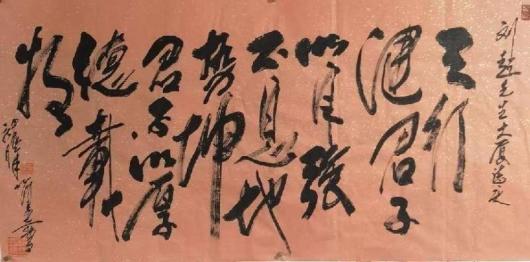 刘先生
天行
健君子
以自强
不息地
势坤
君子以厚
德载
物